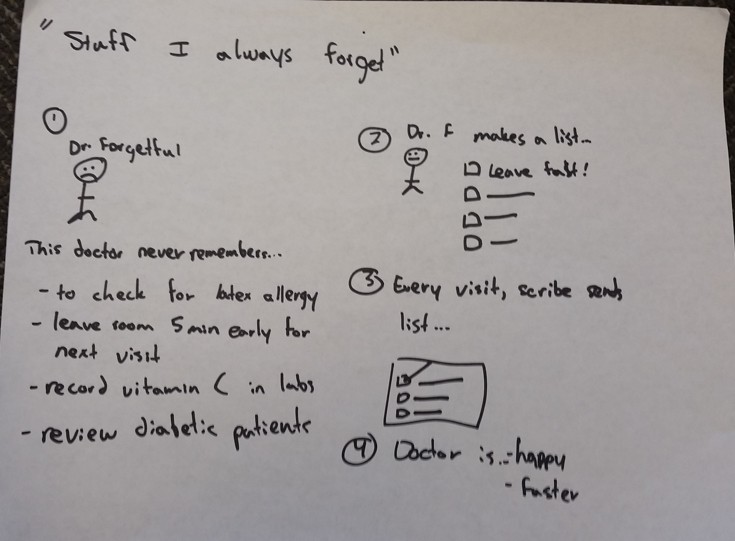 "Stuff I always forget"
①
Dr. Forgetful
This doctor never remembers...
- to check for latex allergy
- leave room 5 min early for
next visit
- record vitamin C in labs
- review diabetic patients
② Dr. F makes a list...
Leave fast!
③ Every visit, scribe sends
list...
④ Doctor is... - happy
- faster